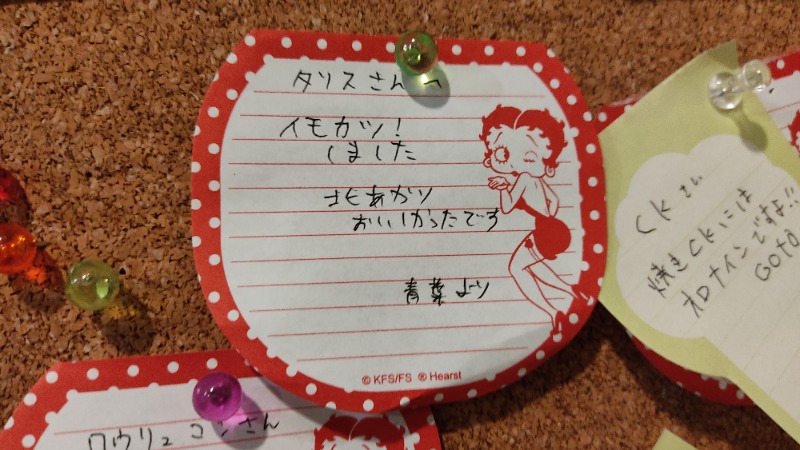 タリスさんへ
イモカツ!
しました
北あかり
おいしかったです
青葉より
© KFS/FS ® Hearst
CKさん
焼きCKには
オロナインですよ!!
GOTO
ロウリュコンさん